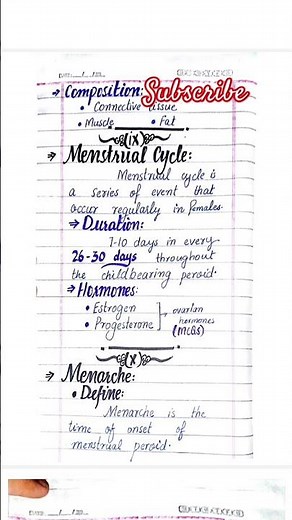 DATE: __/__/20__
→ Composition: Subscribe
• Connective tissue
• Muscle • Fat
(ix)
⇒ Menstrual Cycle:
Menstrual cycle is
a series of event that
occur regularly in females.
⇒ Duration:
7-10 days in every
26-30 days throughout
the childbearing peroid.
⇒ Hormones:
• Estrogen
• Progesterone
ovarian
hormones
(MCQS)
(x)
⇒ Menarche:
• Define:
Menarche is the
time of onset of
menstrual peroid.